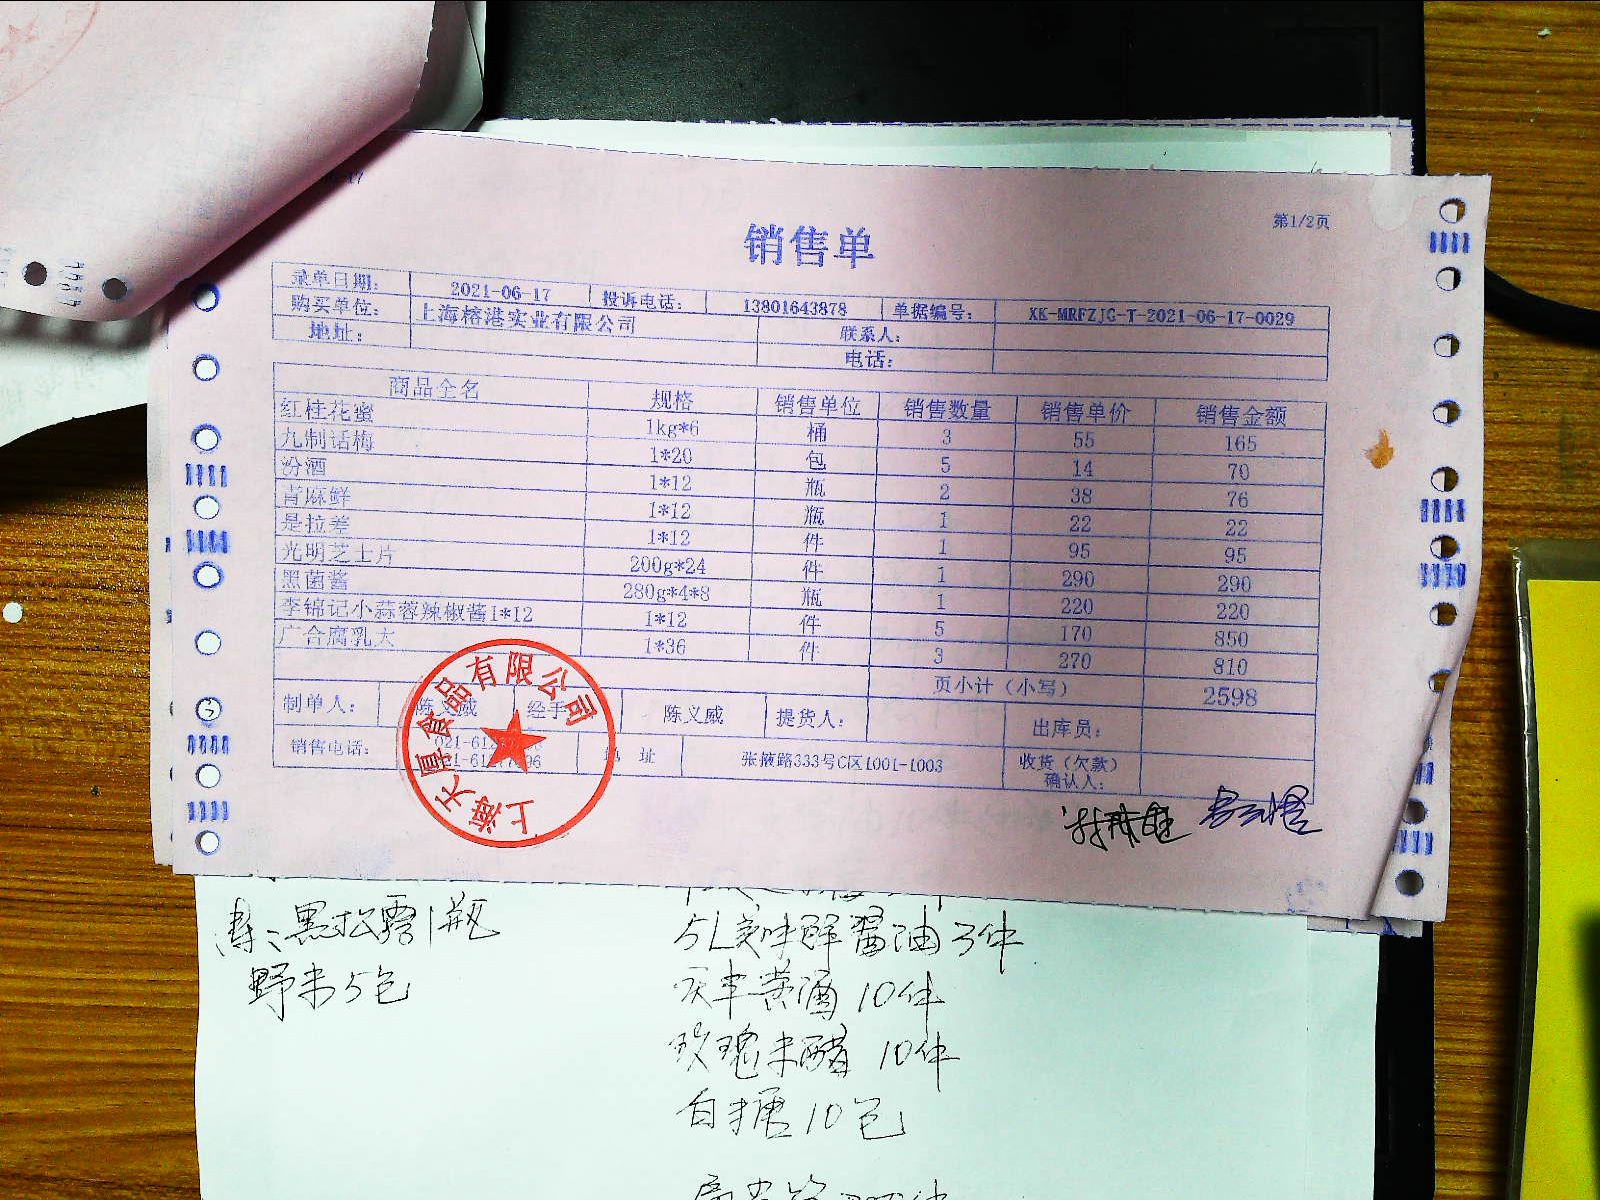 第1/2页
销售单
录单日期: 2021-06-17 投诉电话: 13801643878 单据编号: XK-MRFZJG-T-2021-06-17-0029
购买单位: 上海榕港实业有限公司 联系人:
地址: 电话:
商品全名 规格 销售单位 销售数量 销售单价 销售金额
红桂花蜜 1kg*6 桶 3 55 165
九制话梅 1*20 包 5 14 70
汾酒 1*12 瓶 2 38 76
青麻鲜 1*12 瓶 1 22 22
是拉差 1*12 件 1 95 95
光明芝士片 200g*24 件 1 290 290
黑菌酱 280g*4*8 瓶 1 220 220
李锦记小蒜蓉辣椒酱1*12 1*12 件 5 170 850
广合腐乳大 1*36 件 3 270 810
页小计（小写） 2598
制单人: 陈义威 经手 陈义威 提货人: 出库员:
销售电话: 地 址 张掖路333号C区1001-1003 收货（欠款）确认人:
上海天厚食品有限公司
黑松露1瓶
野米5包
5L美味鲜酱油3件
黄酒10件
玫瑰米醋 10件
白糖10包